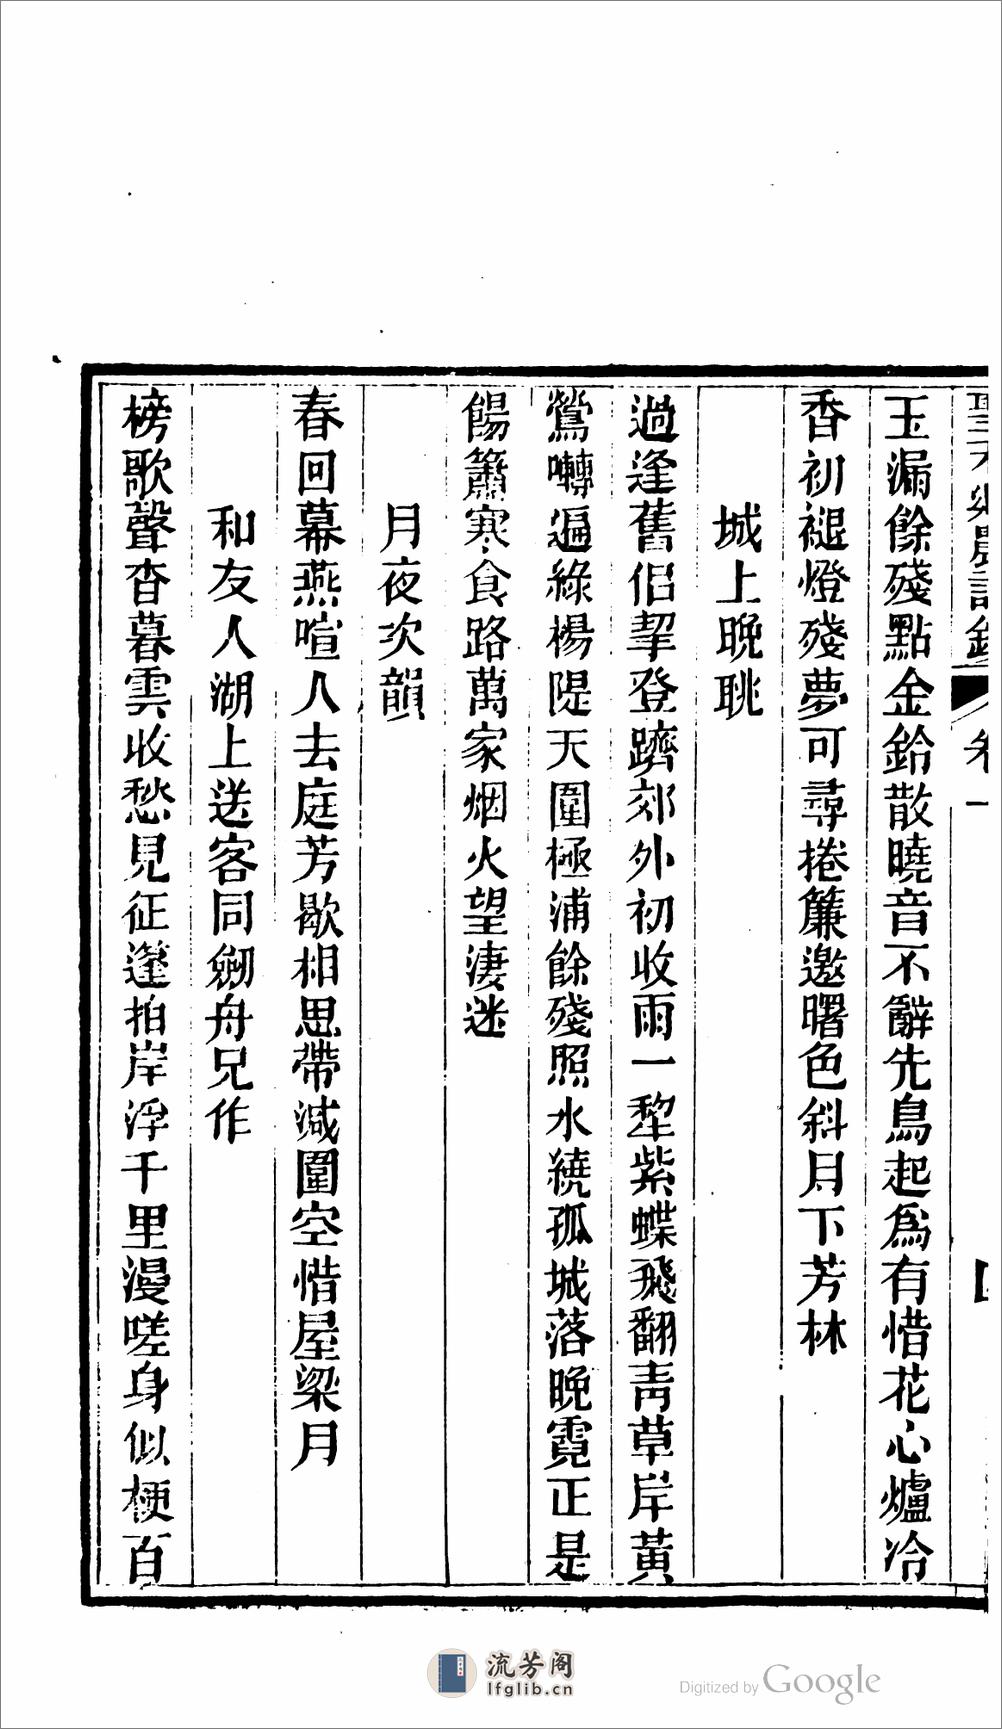 卷一
玉漏餘殘點金鈴散曉音不辭先鳥起爲有惜花心爐冷
香初褪燈殘夢可尋捲簾邀曙色斜月下芳林
城上晚眺
過逢舊侶挈登躋郊外初收雨一犂紫蝶飛翻靑草岸黃
鶯囀遍綠楊隄天圍極浦餘殘照水繞孤城落晚霓正是
餳簫寒食路萬家烟火望淒迷
月夜次韻
春回幕燕喧人去庭芳歇相思帶減圍空惜屋梁月
和友人湖上送客同劒舟兄作
榜歌聲杳暮雲收愁見征篷拍岸浮千里漫嗟身似梗百
流芳阁
lfglib.cn
Digitized by Google